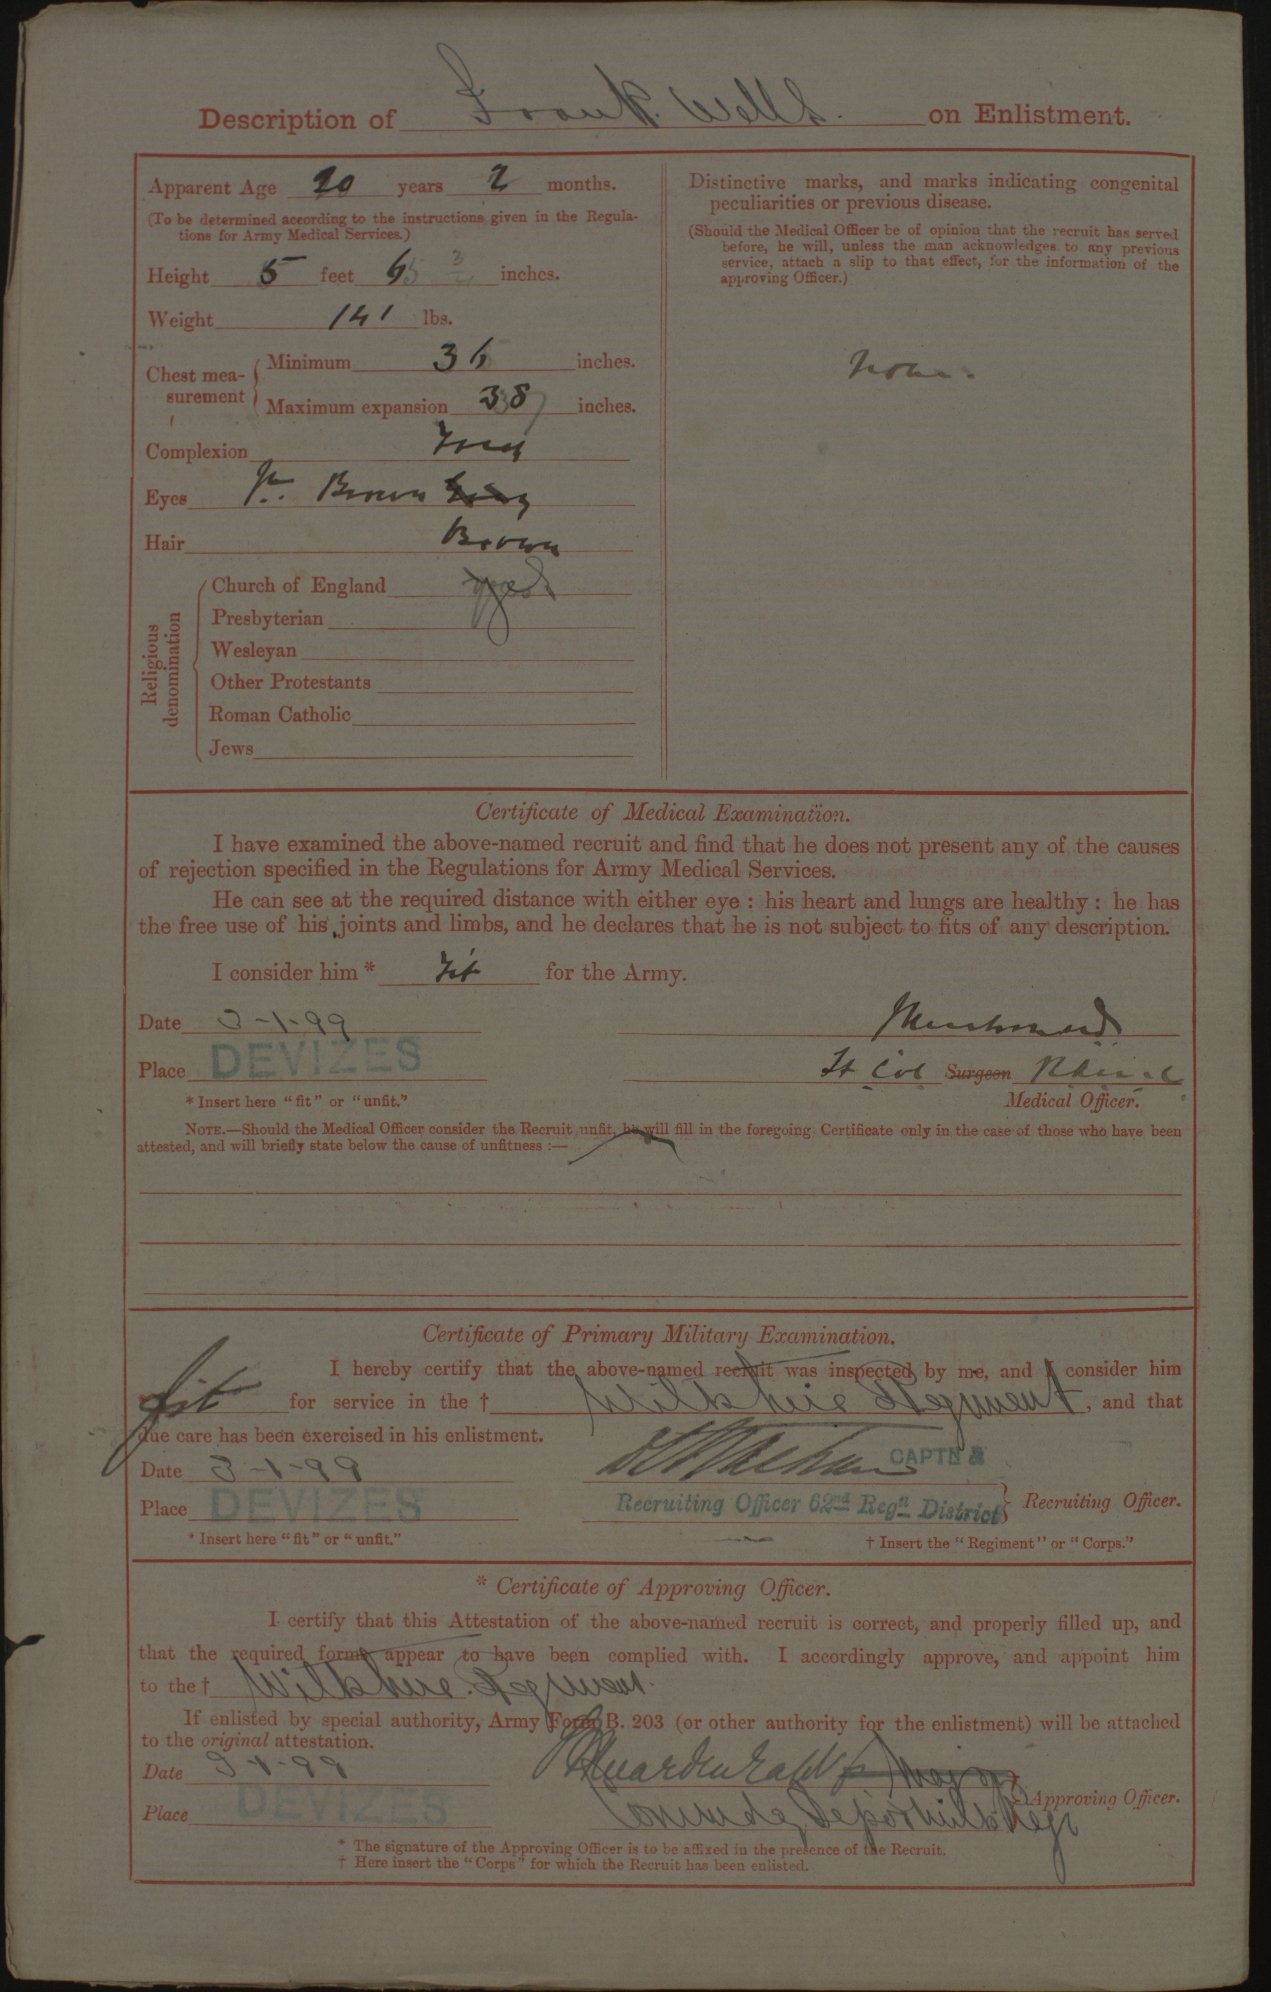 Description of Frank Wells. on Enlistment.
Apparent Age 20 years 2 months.
(To be determined according to the instructions given in the Regula-
tions for Army Medical Services.)
Height 5 feet inches.
Weight 141 lbs.
Chest mea-
surement
Minimum 36 inches.
Maximum expansion 38 inches.
Complexion Fresh
Eyes Brown
Hair Brown
Religious
denomination
Church of England yes
Presbyterian
Wesleyan
Other Protestants
Roman Catholic
Jews
Distinctive marks, and marks indicating congenital
peculiarities or previous disease.
(Should the Medical Officer be of opinion that the recruit has served
before, he will, unless the man acknowledges to any previous
service, attach a slip to that effect, for the information of the
approving Officer.)
None.
Certificate of Medical Examination.
I have examined the above-named recruit and find that he does not present any of the causes
of rejection specified in the Regulations for Army Medical Services.
He can see at the required distance with either eye : his heart and lungs are healthy : he has
the free use of his joints and limbs, and he declares that he is not subject to fits of any description.
I consider him * Fit for the Army.
Date 3-1-99
Place DEVIZES
Lt Col Surgeon
Medical Officer.
* Insert here "fit" or "unfit."
NOTE.—Should the Medical Officer consider the Recruit unfit, he will fill in the foregoing Certificate only in the case of those who have been
attested, and will briefly state below the cause of unfitness :—
Certificate of Primary Military Examination.
I hereby certify that the above-named recruit was inspected by me, and I consider him
fit for service in the † Wiltshire Regiment, and that
due care has been exercised in his enlistment.
Date 3-1-99
CAPTN &
Place DEVIZES
Recruiting Officer 62nd Regn District
Recruiting Officer.
* Insert here "fit" or "unfit."
† Insert the "Regiment" or "Corps."
* Certificate of Approving Officer.
I certify that this Attestation of the above-named recruit is correct, and properly filled up, and
that the required forms appear to have been complied with. I accordingly approve, and appoint him
to the † Wiltshire Regiment.
If enlisted by special authority, Army Form B. 203 (or other authority for the enlistment) will be attached
to the original attestation.
Date 3-1-99
Major
Place DEVIZES
Approving Officer.
* The signature of the Approving Officer is to be affixed in the presence of the Recruit.
† Here insert the "Corps" for which the Recruit has been enlisted.